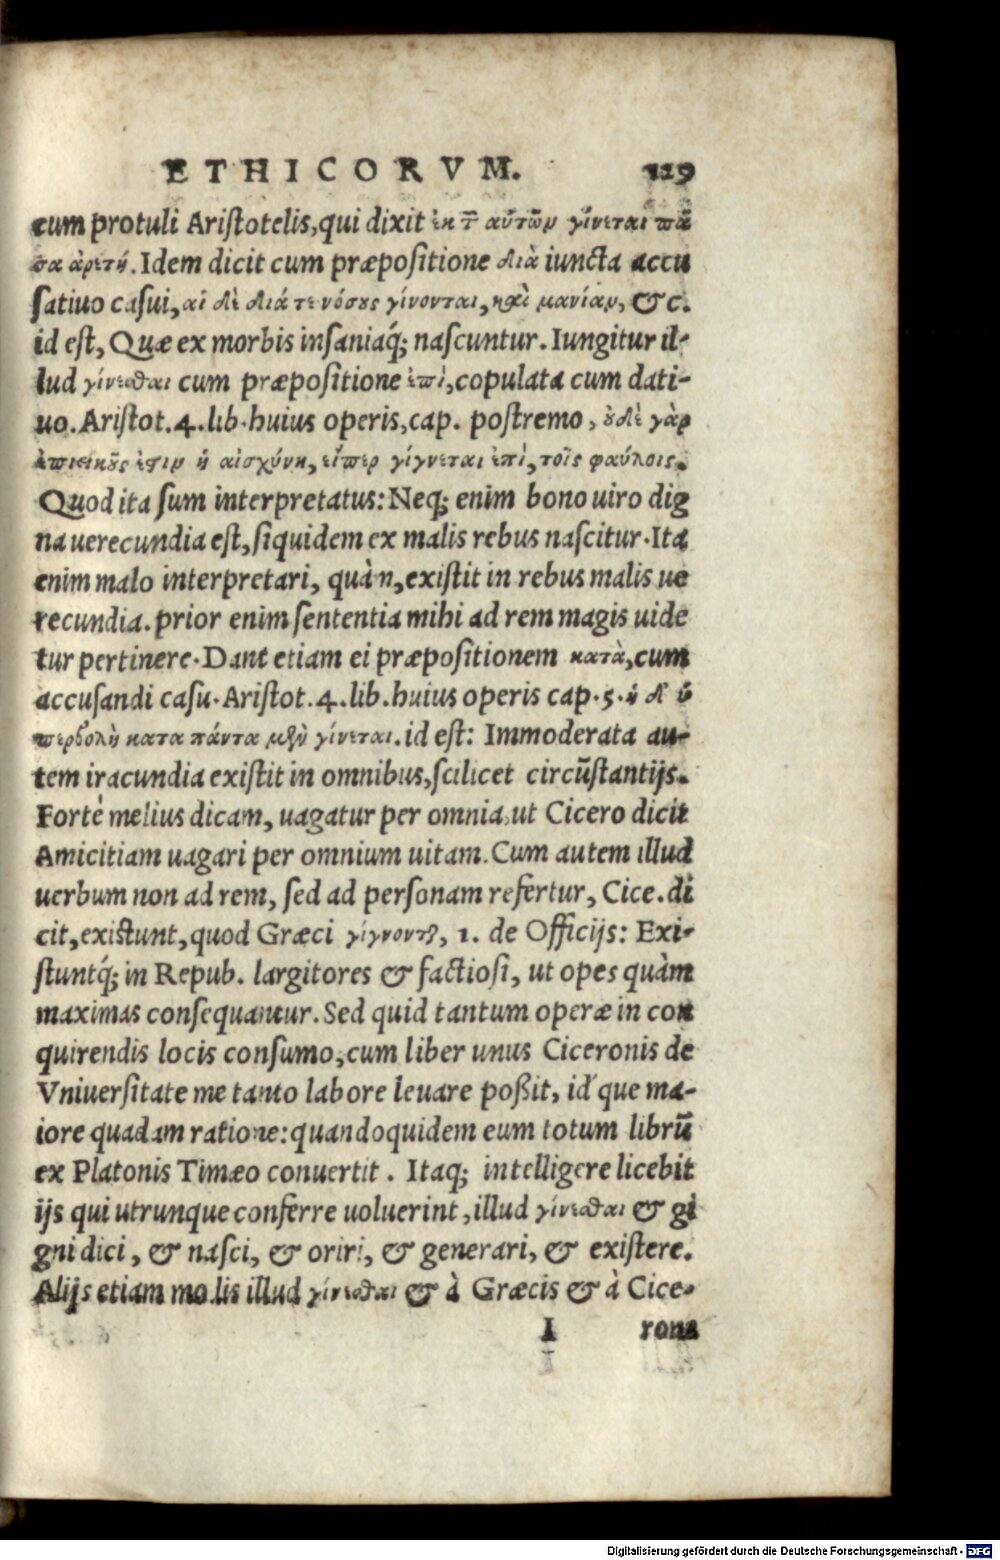 ETHICORVM. 129
cum protuli Aristotelis, qui dixit ἐκ τ̄ αὐτῶν γίνεται πᾶ
σα ἀρετή. Idem dicit cum præpositione διὰ iuncta accu
satiuo casui, αἱ δὲ διά τε νόσους γίνονται, καὶ μανίαν, &c.
id est, Quæ ex morbis insaniaq́; nascuntur. Iungitur il-
lud γίνεσθαι cum præpositione ἐπὶ, copulata cum dati-
uo. Aristot. 4. lib. huius operis, cap. postremo, οὐδὲ γὰρ
ἐπιεικοῦς ἐστιν ἡ αἰσχύνη, εἴπερ γίγνεται ἐπὶ, τοῖς φαύλοις.
Quod ita sum interpretatus: Neq; enim bono uiro dig
na uerecundia est, siquidem ex malis rebus nascitur. Ita
enim malo interpretari, quàm, existit in rebus malis ue
recundia. prior enim sententia mihi ad rem magis uide
tur pertinere. Dant etiam ei præpositionem κατὰ, cum
accusandi casu. Aristot. 4. lib. huius operis cap. 5. ἡ δ' ὑ
περβολὴ κατα πάντα μὲν γίνεται. id est: Immoderata au-
tem iracundia existit in omnibus, scilicet circũstantijs.
Fortè melius dicam, uagatur per omnia, ut Cicero dicit
Amicitiam uagari per omnium uitam. Cum autem illud
uerbum non ad rem, sed ad personam refertur, Cice. di
cit, existunt, quod Græci γίγνονται, 1. de Officijs: Exi-
stuntq́; in Repub. largitores & factiosi, ut opes quàm
maximas consequantur. Sed quid tantum operæ in con
quirendis locis consumo, cum liber unus Ciceronis de
Vniuersitate me tanto labore leuare poßit, id que ma-
iore quadam ratione: quandoquidem eum totum librũ
ex Platonis Timæo conuertit. Itaq; intelligere licebit
ijs qui utrunque conferre uoluerint, illud γίνεσθαι & gi
gni dici, & nasci, & oriri, & generari, & existere.
Alijs etiam modis illud γίνεσθαι & à Græcis & à Cice-
I rone
Digitalisierung gefördert durch die Deutsche Forschungsgemeinschaft - DFG